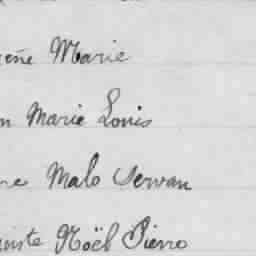 ène Marie
n Marie Louis
re Malo Servan
uste Noël Pierre